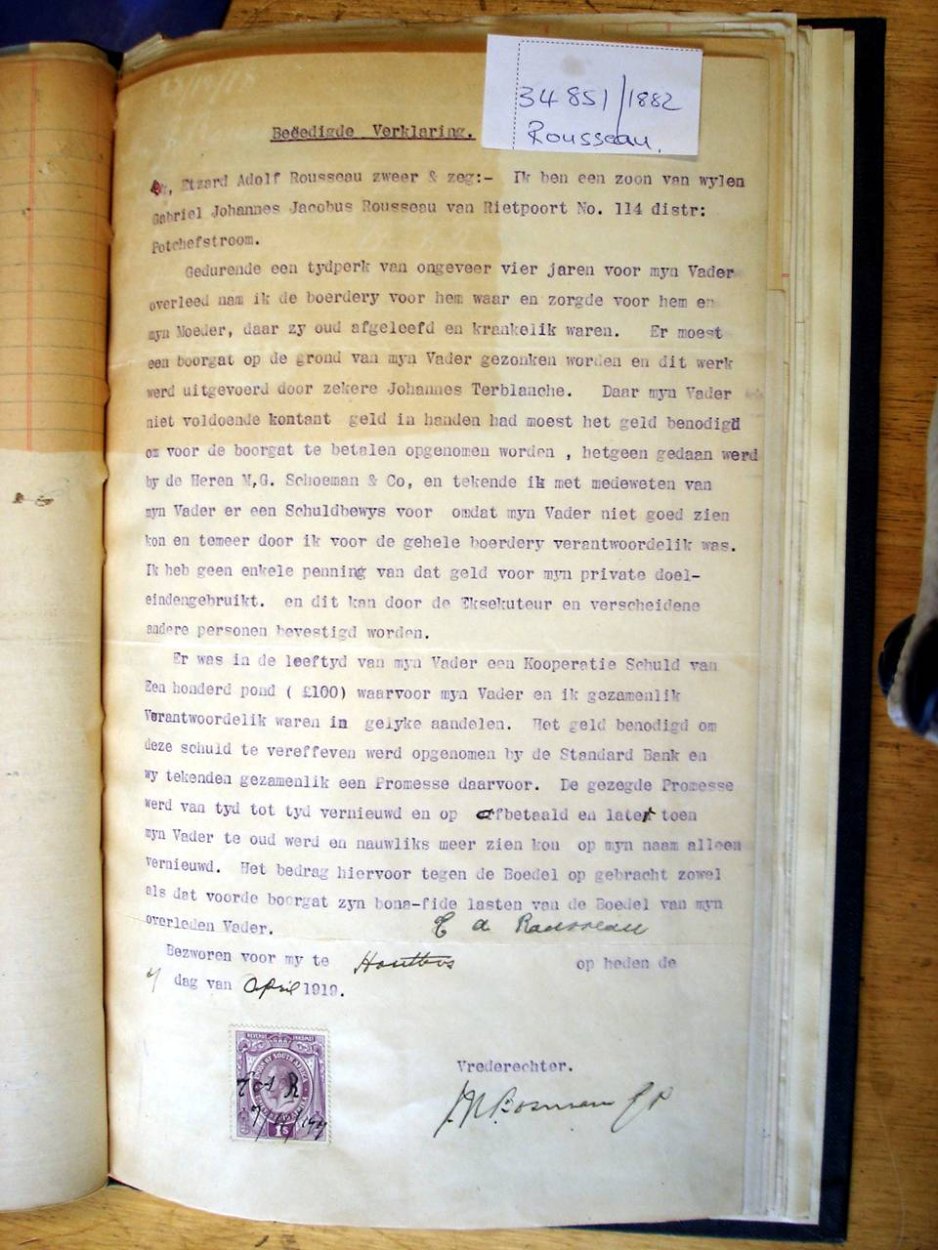 34851/1882
Rousseau.
Beëedigde Verklaring.
Ek, Etzard Adolf Rousseau zweer & zeg:- Ik ben een zoon van wylen
Gabriel Johannes Jacobus Rousseau van Rietpoort No. 114 distr:
Potchefstroom.
Gedurende een tydperk van ongeveer vier jaren voor myn Vader
overleed nam ik de boerdery voor hem waar en zorgde voor hem en
myn Moeder, daar zy oud afgeleefd en krankelik waren. Er moest
een boorgat op de grond van myn Vader gezonken worden en dit werk
werd uitgevoerd door zekere Johannes Terblanche. Daar myn Vader
niet voldoende kontant geld in handen had moest het geld benodigd
om voor de boorgat te betalen opgenomen worden , hetgeen gedaan werd
by de Heren M,G. Schoeman & Co, en tekende ik met medeweten van
myn Vader er een Schuldbewys voor omdat myn Vader niet goed zien
kon en temeer door ik voor de gehele boerdery verantwoordelik was.
Ik heb geen enkele penning van dat geld voor myn private doel-
eindengebruikt. en dit kan door de Eksekuteur en verscheidene
andere personen bevestigd worden.
Er was in de leeftyd van myn Vader een Kooperatie Schuld van
Een honderd pond ( £100) waarvoor myn Vader en ik gezamenlik
Verantwoordelik waren in gelyke aandelen. Het geld benodigd om
deze schuld te vereffeven werd opgenomen by de Standard Bank en
wy tekenden gezamenlik een Promesse daarvoor. De gezegde Promesse
werd van tyd tot tyd vernieuwd en op afbetaald en later toen
myn Vader te oud werd en nauwliks meer zien kon op myn naam alleen
vernieuwd. Het bedrag hiervoor tegen de Boedel op gebracht zowel
als dat voorde boorgat zyn bona-fide lasten van de Boedel van myn
overleden Vader.
E A Rousseau
Bezworen voor my te op heden de
7 dag van April 1919.
Vrederechter.
J N Bosman J P
UNION OF SOUTH AFRICA
E A R
1S